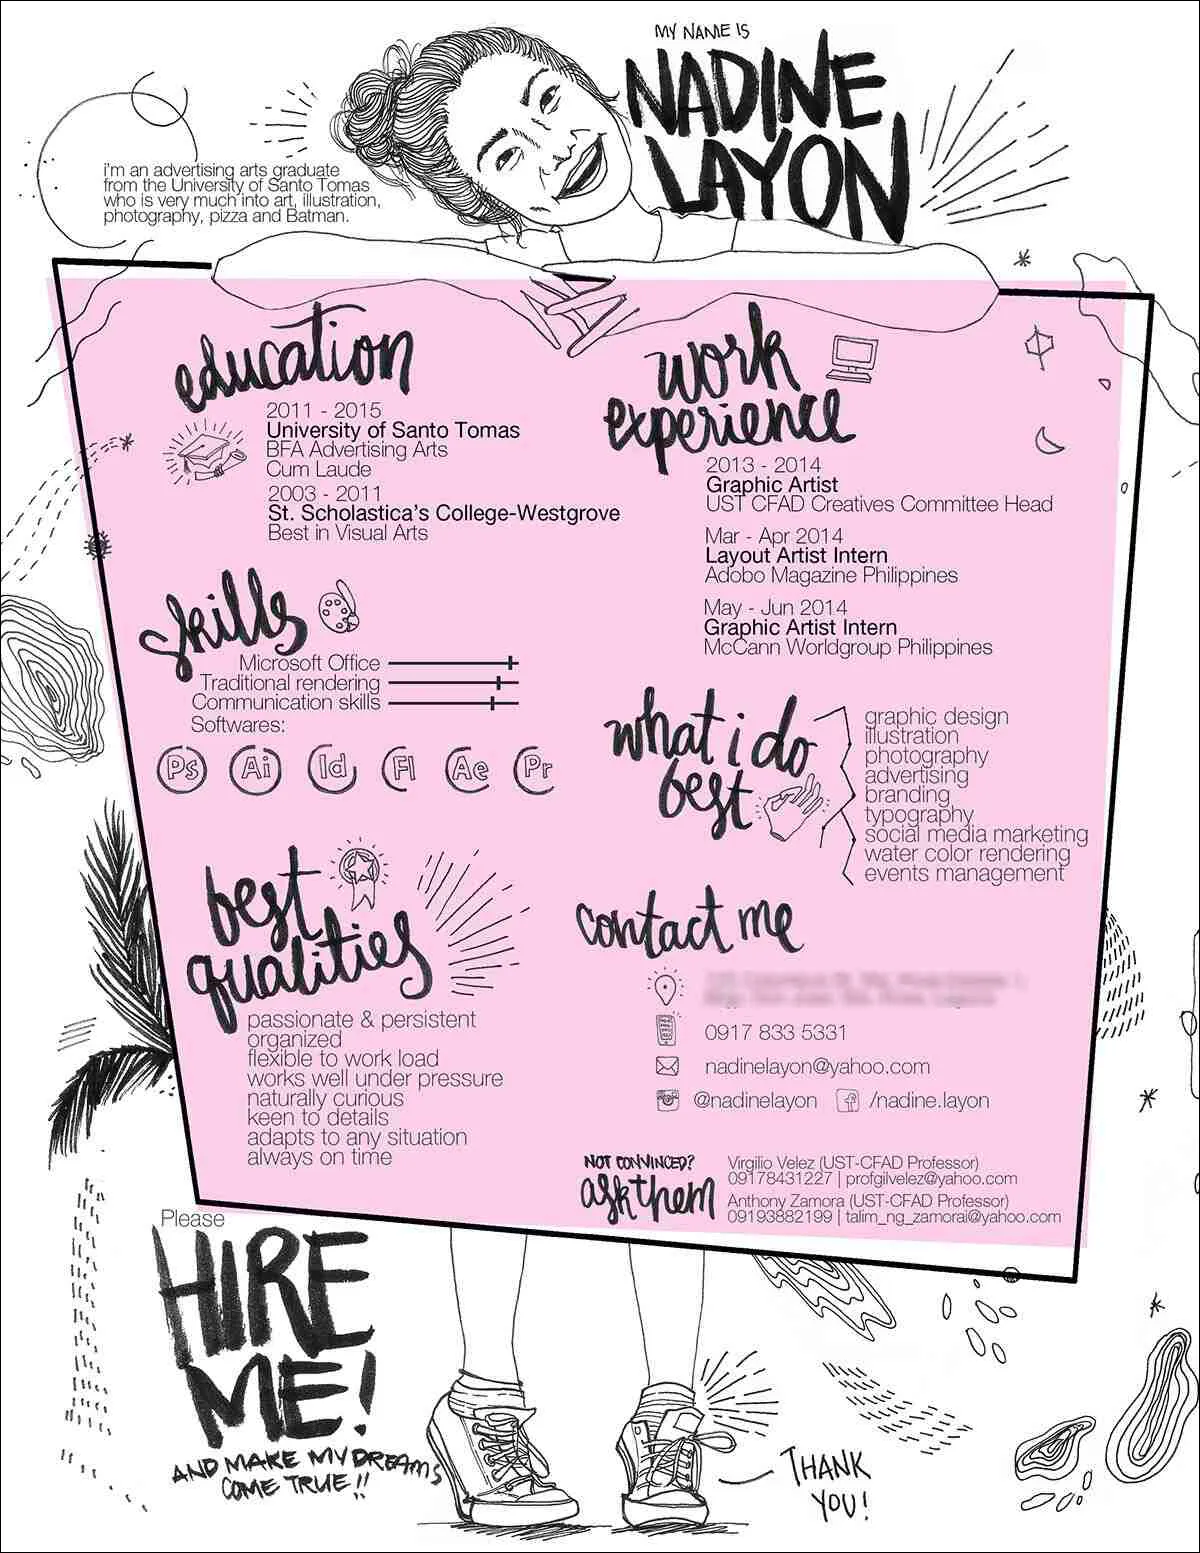 MY NAME IS
NADINE
LAYON
i'm an advertising arts graduate
from the University of Santo Tomas
who is very much into art, illustration,
photography, pizza and Batman.
education
2011 - 2015
University of Santo Tomas
BFA Advertising Arts
Cum Laude
2003 - 2011
St. Scholastica's College-Westgrove
Best in Visual Arts
skills
Microsoft Office
Traditional rendering
Communication skills
Softwares:
Ps Ai Id Fl Ae Pr
best
qualities
passionate & persistent
organized
flexible to work load
works well under pressure
naturally curious
keen to details
adapts to any situation
always on time
work
experience
2013 - 2014
Graphic Artist
UST CFAD Creatives Committee Head
Mar - Apr 2014
Layout Artist Intern
Adobo Magazine Philippines
May - Jun 2014
Graphic Artist Intern
McCann Worldgroup Philippines
what i do
best
graphic design
illustration
photography
advertising
branding
typography
social media marketing
water color rendering
events management
contact me
0917 833 5331
nadinelayon@yahoo.com
@nadinelayon /nadine.layon
NOT CONVINCED?
ask them
Virgilio Velez (UST-CFAD Professor)
09178431227 | profgilvelez@yahoo.com
Anthony Zamora (UST-CFAD Professor)
09193882199 | talim_ng_zamorai@yahoo.com
Please
HIRE
ME!
AND MAKE MY DREAMS
COME TRUE!!
THANK
YOU!